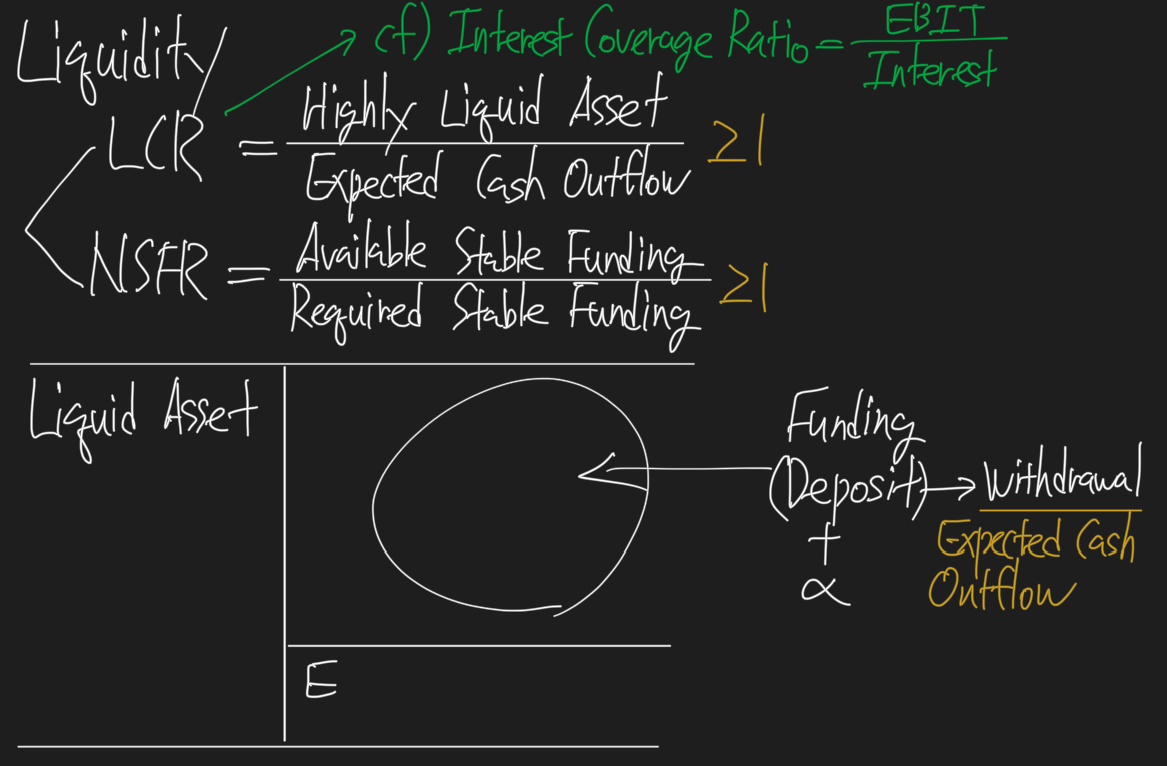 Liquidity
cf) Interest Coverage Ratio = EBIT / Interest
LCR = Highly Liquid Asset / Expected Cash Outflow ≥1
NSFR = Available Stable Funding / Required Stable Funding ≥1
Liquid Asset
Funding
(Deposit) → Withdrawal
+
α
Expected Cash
Outflow
E